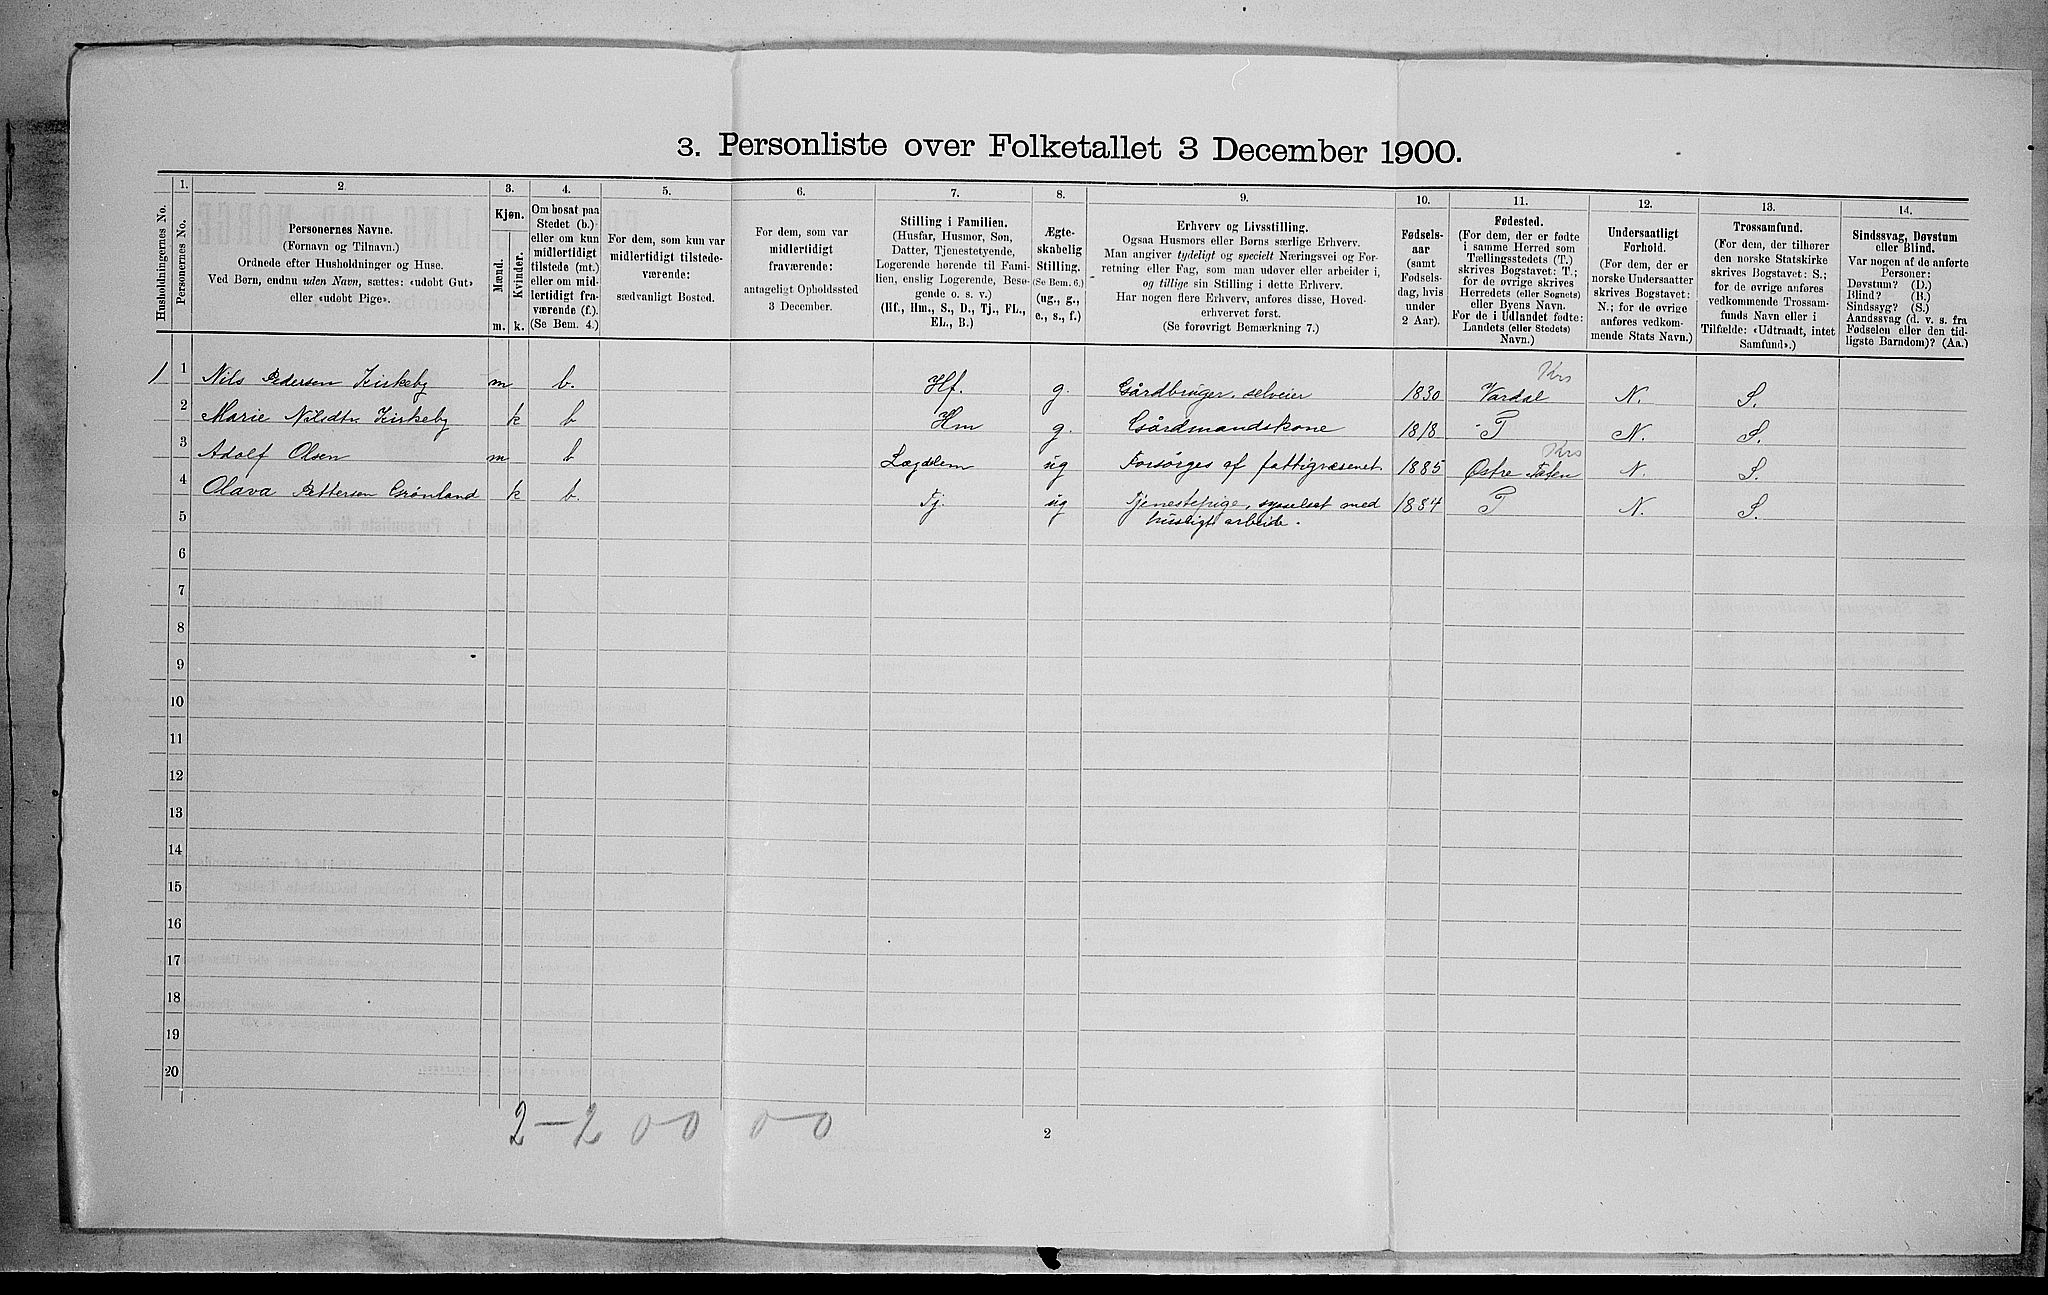 3. Personliste over Folketallet 3 December 1900.
1. 2. 3. 4. 5. 6. 7. 8. 9. 10. 11. 12. 13. 14.
Husholdningernes No.
Personernes No.
Personernes Navne.
(Fornavn og Tilnavn.)
Ordnede efter Husholdninger og Huse.
Ved Børn, endnu uden Navn, sættes: «udøbt Gut»
eller «udøbt Pige».
Kjøn.
Mænd.
Kvinder.
m. k.
Om bosat paa
Stedet (b.)
eller om kun
midlertidigt
tilstede (mt.)
eller om mid-
lertidigt fra-
værende (f.)
(Se Bem. 4.)
For dem, som kun var
midlertidigt tilstede-
værende:
sædvanligt Bosted.
For dem, som var
midlertidigt
fraværende:
antageligt Opholdssted
3 December.
Stilling i Familien.
(Husfar, Husmor, Søn,
Datter, Tjenestetyende,
Logerende hørende til Fami-
lien, enslig Logerende, Besø-
gende o. s. v.)
(Hf., Hm., S., D., Tj., FL.,
EL., B.)
Ægte-
skabelig
Stilling.
(Se Bem. 6.)
(ug., g.,
e., s., f.)
Erhverv og Livsstilling.
Ogsaa Husmors eller Børns særlige Erhverv.
Man angiver tydeligt og specielt Næringsvei og For-
retning eller Fag, som man udøver eller arbeider i,
og tillige sin Stilling i dette Erhverv.
Har nogen flere Erhverv, anføres disse, Hoved-
erhvervet først.
(Se forøvrigt Bemærkning 7.)
Fødsels-
aar
(samt
Fødsels-
dag, hvis
under
2 Aar).
Fødested.
(For dem, der er fødte
i samme Herred som
Tællingsstedets (T.)
skrives Bogstavet: T.;
for de øvrige skrives
Herredets (eller Sognets)
eller Byens Navn.
For de i Udlandet fødte:
Landets (eller Stedets)
Navn.)
Undersaatligt
Forhold.
(For dem, der er
norske Undersaatter
skrives Bogstavet:
N.; for de øvrige
anføres vedkom-
mende Stats Navn.)
Trossamfund.
(For dem, der tilhører
den norske Statskirke
skrives Bogstavet: S.;
for de øvrige anføres
vedkommende Trossam-
funds Navn eller i
Tilfælde: «Udtraadt, intet
Samfund».)
Sindssvag, Døvstum
eller Blind.
Var nogen af de anførte
Personer:
Døvstum? (D.)
Blind? (B.)
Sindssyg? (S.)
Aandssvag (d. v. s. fra
Fødselen eller den tid-
ligste Barndom)? (Aa.)
1 1 Nils Pedersen Kirkeby m b. Hf. g. Gårdbruger, selveier 1830 Krs Vardal N. S.
2 Marie Nilsdtr Kirkeby k b Hm g. Gårdmandskone 1818 T N. S.
3 Adolf Olsen m b Lægdslem ug Forsørges af fattigvæsenet 1885 Krs Østre Toten N. S.
4 Olava Pettersen Grønland k b. Tj. ug Tjenestepige, sysselsat med 1884 T N. S.
husligt arbeide.
5
6
7
8
9
10
11
12
13
14
15
16
17
18
19
20
2-2 00 00
2